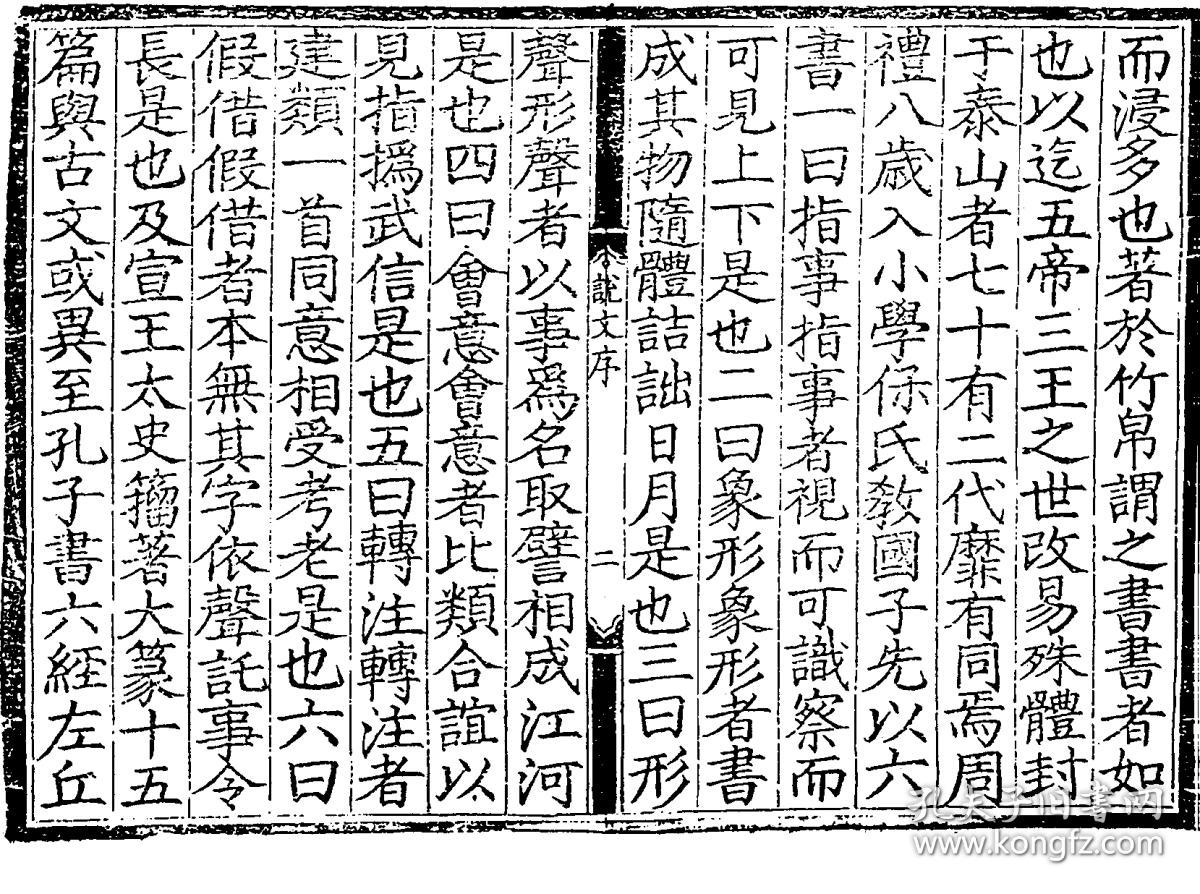 而浸多也著於竹帛謂之書書者如
也以迄五帝三王之世改易殊體封
于泰山者七十有二代靡有同焉周
禮八歲入小學保氏敎國子先以六
書一曰指事指事者視而可識察而
可見上下是也二曰象形象形者書
成其物隨體詰詘日月是也三曰形
說文序 二
聲形聲者以事爲名取譬相成江河
是也四曰會意會意者比類合誼以
見指撝武信是也五曰轉注轉注者
建類一首同意相受考老是也六曰
假借假借者本無其字依聲託事令
長是也及宣王太史籀著大篆十五
篇與古文或異至孔子書六經左丘
孔夫子旧书网
www.kongfz.com